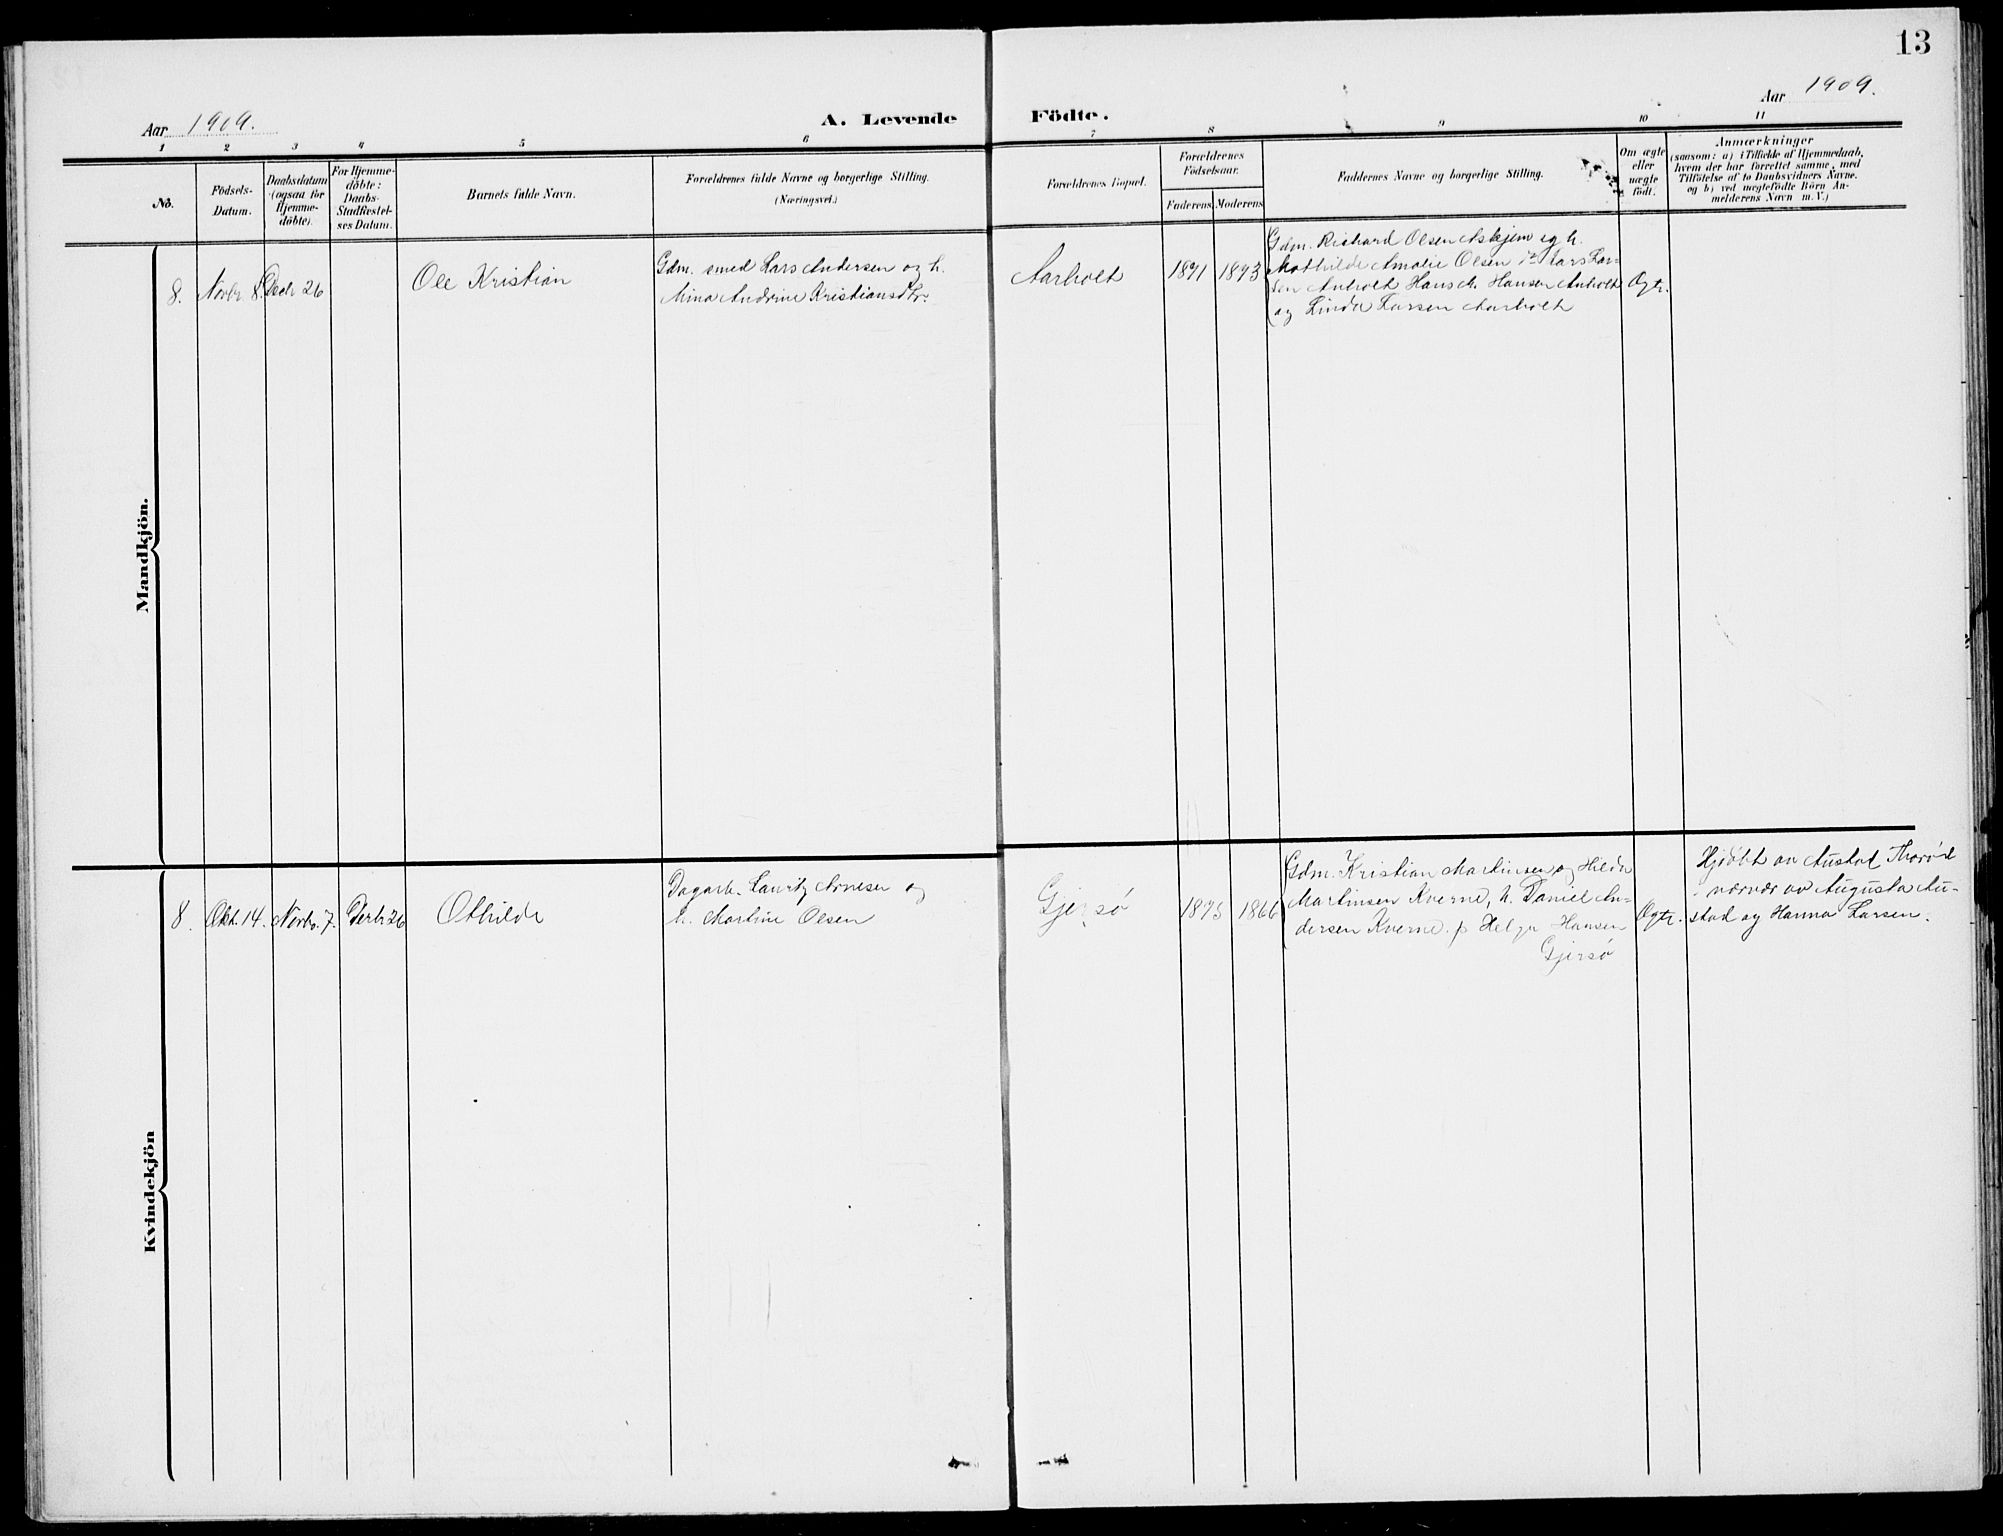 13
Aar 1909.
A. Levende Födte.
Aar 1909.
1 2 3 4 5 6 7 8 9 10 11
No.
Födsels-
Datum.
Daabsdatum
(ogsaa for
Hjemme-
døbte).
For Hjemme-
døbte:
Daabs-
Stadfæstel-
ses Datum.
Barnets fulde Navn.
Forældrenes fulde Navne og borgerlige Stilling.
(Næringsvei.)
Forældrenes Bopæl.
Forældrenes
Födselsaar.
Faderens. Moderens.
Faddernes Navne og borgerlige Stilling.
Om ægte
eller
uægte
født.
Anmærkninger
(saasom: a) i Tilfælde af Hjemmedaab,
hvem der har forrettet samme, med
Tilföielse af to Daabsvidners Navne.
og b) ved uægtefödte Börn An-
melderens Navn m. V.)
Mandkjön.
8. Novbr 8. Decbr 26
Ole Kristian
Gdm. smed Lars Andersen og h.
Mina Andrine Kristiansdtr.
Aarholt
1871 1873
Gdm. Richard Olsen Askjem og h.
Mathilde Amalie Olsen Lars Lar-
sen Anholt Hans M. Hansen Anholt
og Linda Larsen Aarholt
Ægte.
Kvindekjön
8. Okt. 14. Novbr. 7. Decbr 26
Othilde
Dagarb. Lauritz Arnesen og
h. Martine Olsen
Gjersø
1875 1866
Gdm. Kristian Martinsen og Hilda
Martinsen Kverne, h. Daniel An-
dersen Kverne. p Helga Hansen
Gjersø
Ægte.
Hjdöbt av Austad Thorød
nærvær av Augusta Au-
stad og Hanna Larsen.